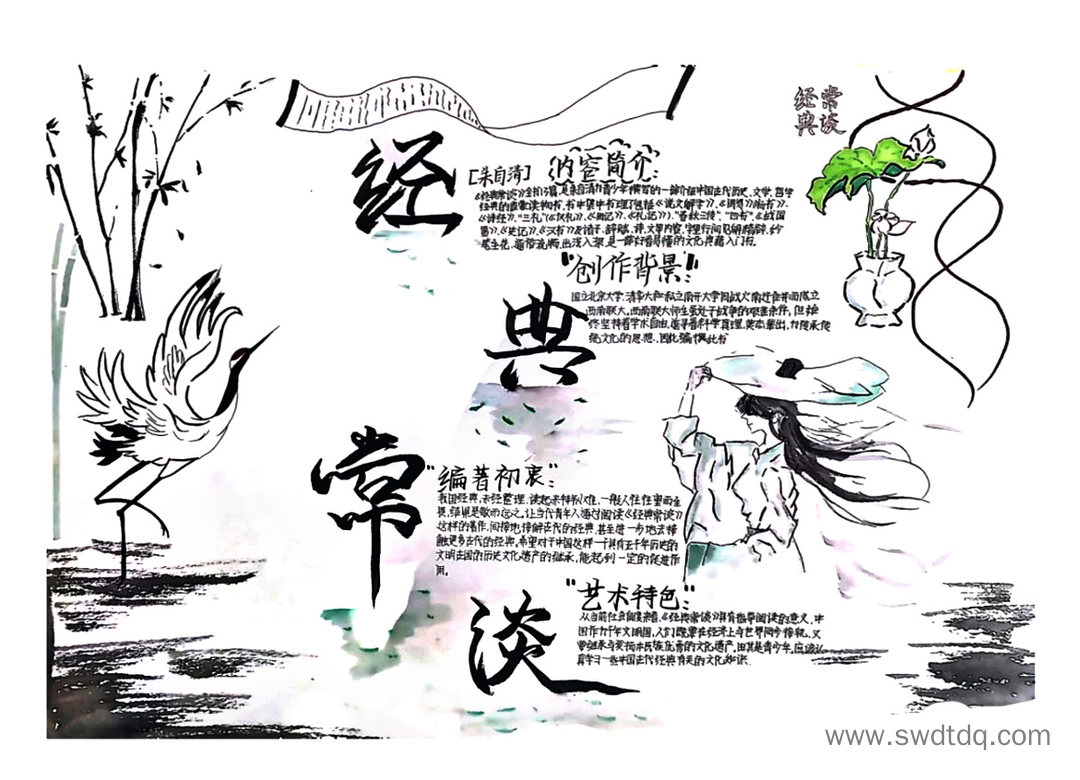 经典常淡
经典
常谈
[朱自清]
内容简介:
《经典常谈》全书13篇,是朱自清为青少年撰写的一部介绍中国古代历史、文学、哲学
经典的启蒙读物书,书中集中书理了包括《说文解字》、《周易》《尚书》、
《诗经》、"三礼"(《仪礼》、《周记》、《礼记》)、"春秋三传"、"四书"、《战国
策》、《史记》、《汉书》及诸子、辞赋、诗、文等内容,字里行间见解精辟、妙
笔生花、通俗流畅,出浅入深,是一部好看易懂的文化典籍入门书,
"创作背景"
国立北京大学、清华大学和私立南开大学因战火南迁合并而成立
西南联大。西南联大师生虽处于战争的艰难条件,但始
终坚持着学术自由,追寻着科学真理,英杰辈出,为传承传
统文化的思想,因此编撰此书
"编著初衷":
我国经典,未经整理,读起来特别难,一般人往往望而生
畏,结果是敬而远之,让当代青年人通过阅读《经典常谈》
这样的著作,间接地接解古代的经典,甚至进一步地去接
触更多古代的经典,希望对于中国这样一个具有五千年历史的
文明古国的历史文化遗产的继承,能起到一定的促进作
用。
"艺术特色":
从当前社会角度来看,《经典常谈》具有指导阅读的意义,中
国作为千年文明国,人们既要在经济上与世界同步接轨,又
要继承与发扬本民族优秀的文化遗产,由其是青少年,应该认
真学习一些中国古代经典有关的文化知识.
www.swdtdq.com